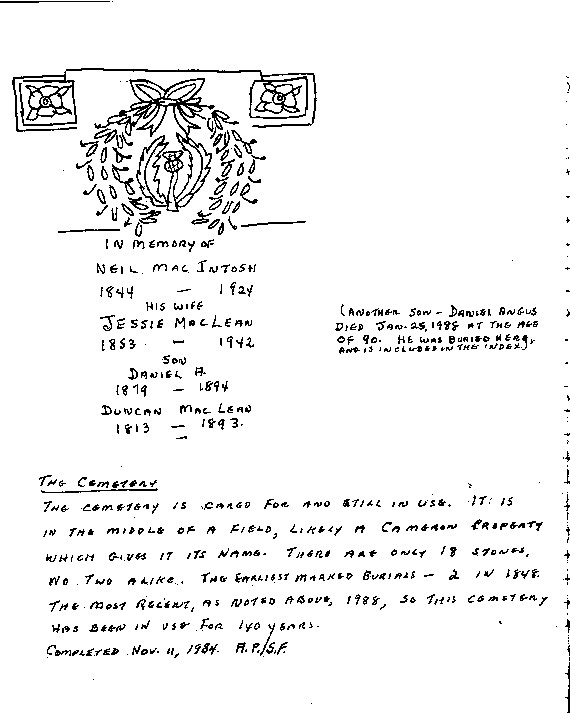 IN MEMORY OF
NEIL MAC INTOSH
1844 — 1924
HIS WIFE
JESSIE MACLEAN
1853 — 1942
SON
DANIEL A.
1879 — 1894
DUNCAN MAC LEAN
1813 — 1893.
(ANOTHER SON - DANIEL ANGUS
DIED JAN. 25, 1988 AT THE AGE
OF 90. HE WAS BURIED HERE,
AND IS INCLUDED IN THE INDEX)
THE CEMETERY
THE CEMETERY IS CARED FOR AND STILL IN USE. IT IS
IN THE MIDDLE OF A FIELD, LIKELY A CAMERON PROPERTY
WHICH GIVES IT ITS NAME. THERE ARE ONLY 18 STONES,
NO TWO ALIKE. THE EARLIEST MARKED BURIALS - 2 IN 1848.
THE MOST RECENT, AS NOTED ABOVE, 1988, SO THIS CEMETERY
HAS BEEN IN USE FOR 140 YEARS.
COMPLETED NOV. 11, 1984. A.P./S.F.